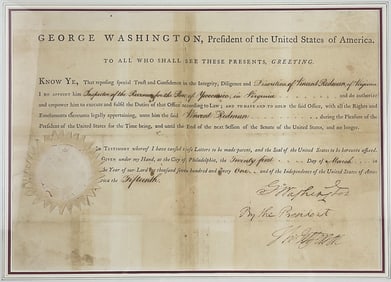 GEORGE WASHINGTON, President of the United States of America.
TO ALL WHO SHALL SEE THESE PRESENTS, GREETING.
KNOW YE, That reposing special Trust and Confidence in the Integrity, Diligence and Discretion of Vincent Redman of Virginia
I DO APPOINT HIM Inspector of the Revenue for the Port of Yeocomico, in Virginia and do authorize
and empower him to execute and fulfil the Duties of that Office according to Law; AND TO HAVE AND TO HOLD the said Office, with all the Rights and
Emoluments thereunto legally appertaining, unto him the said Vincent Redman during the Pleasure of the
President of the United States for the Time being, and until the End of the next Session of the Senate of the United States, and no longer.
IN TESTIMONY whereof I have caused these Letters to be made Patent, and the Seal of the United States to be hereunto affixed.
GIVEN under my Hand, at the City of Philadelphia, the Twenty first Day of March in
the Year of our Lord thousand seven hundred and Ninety One and of the Independence of the United States of
the Fifteenth.
G Washington
By the President